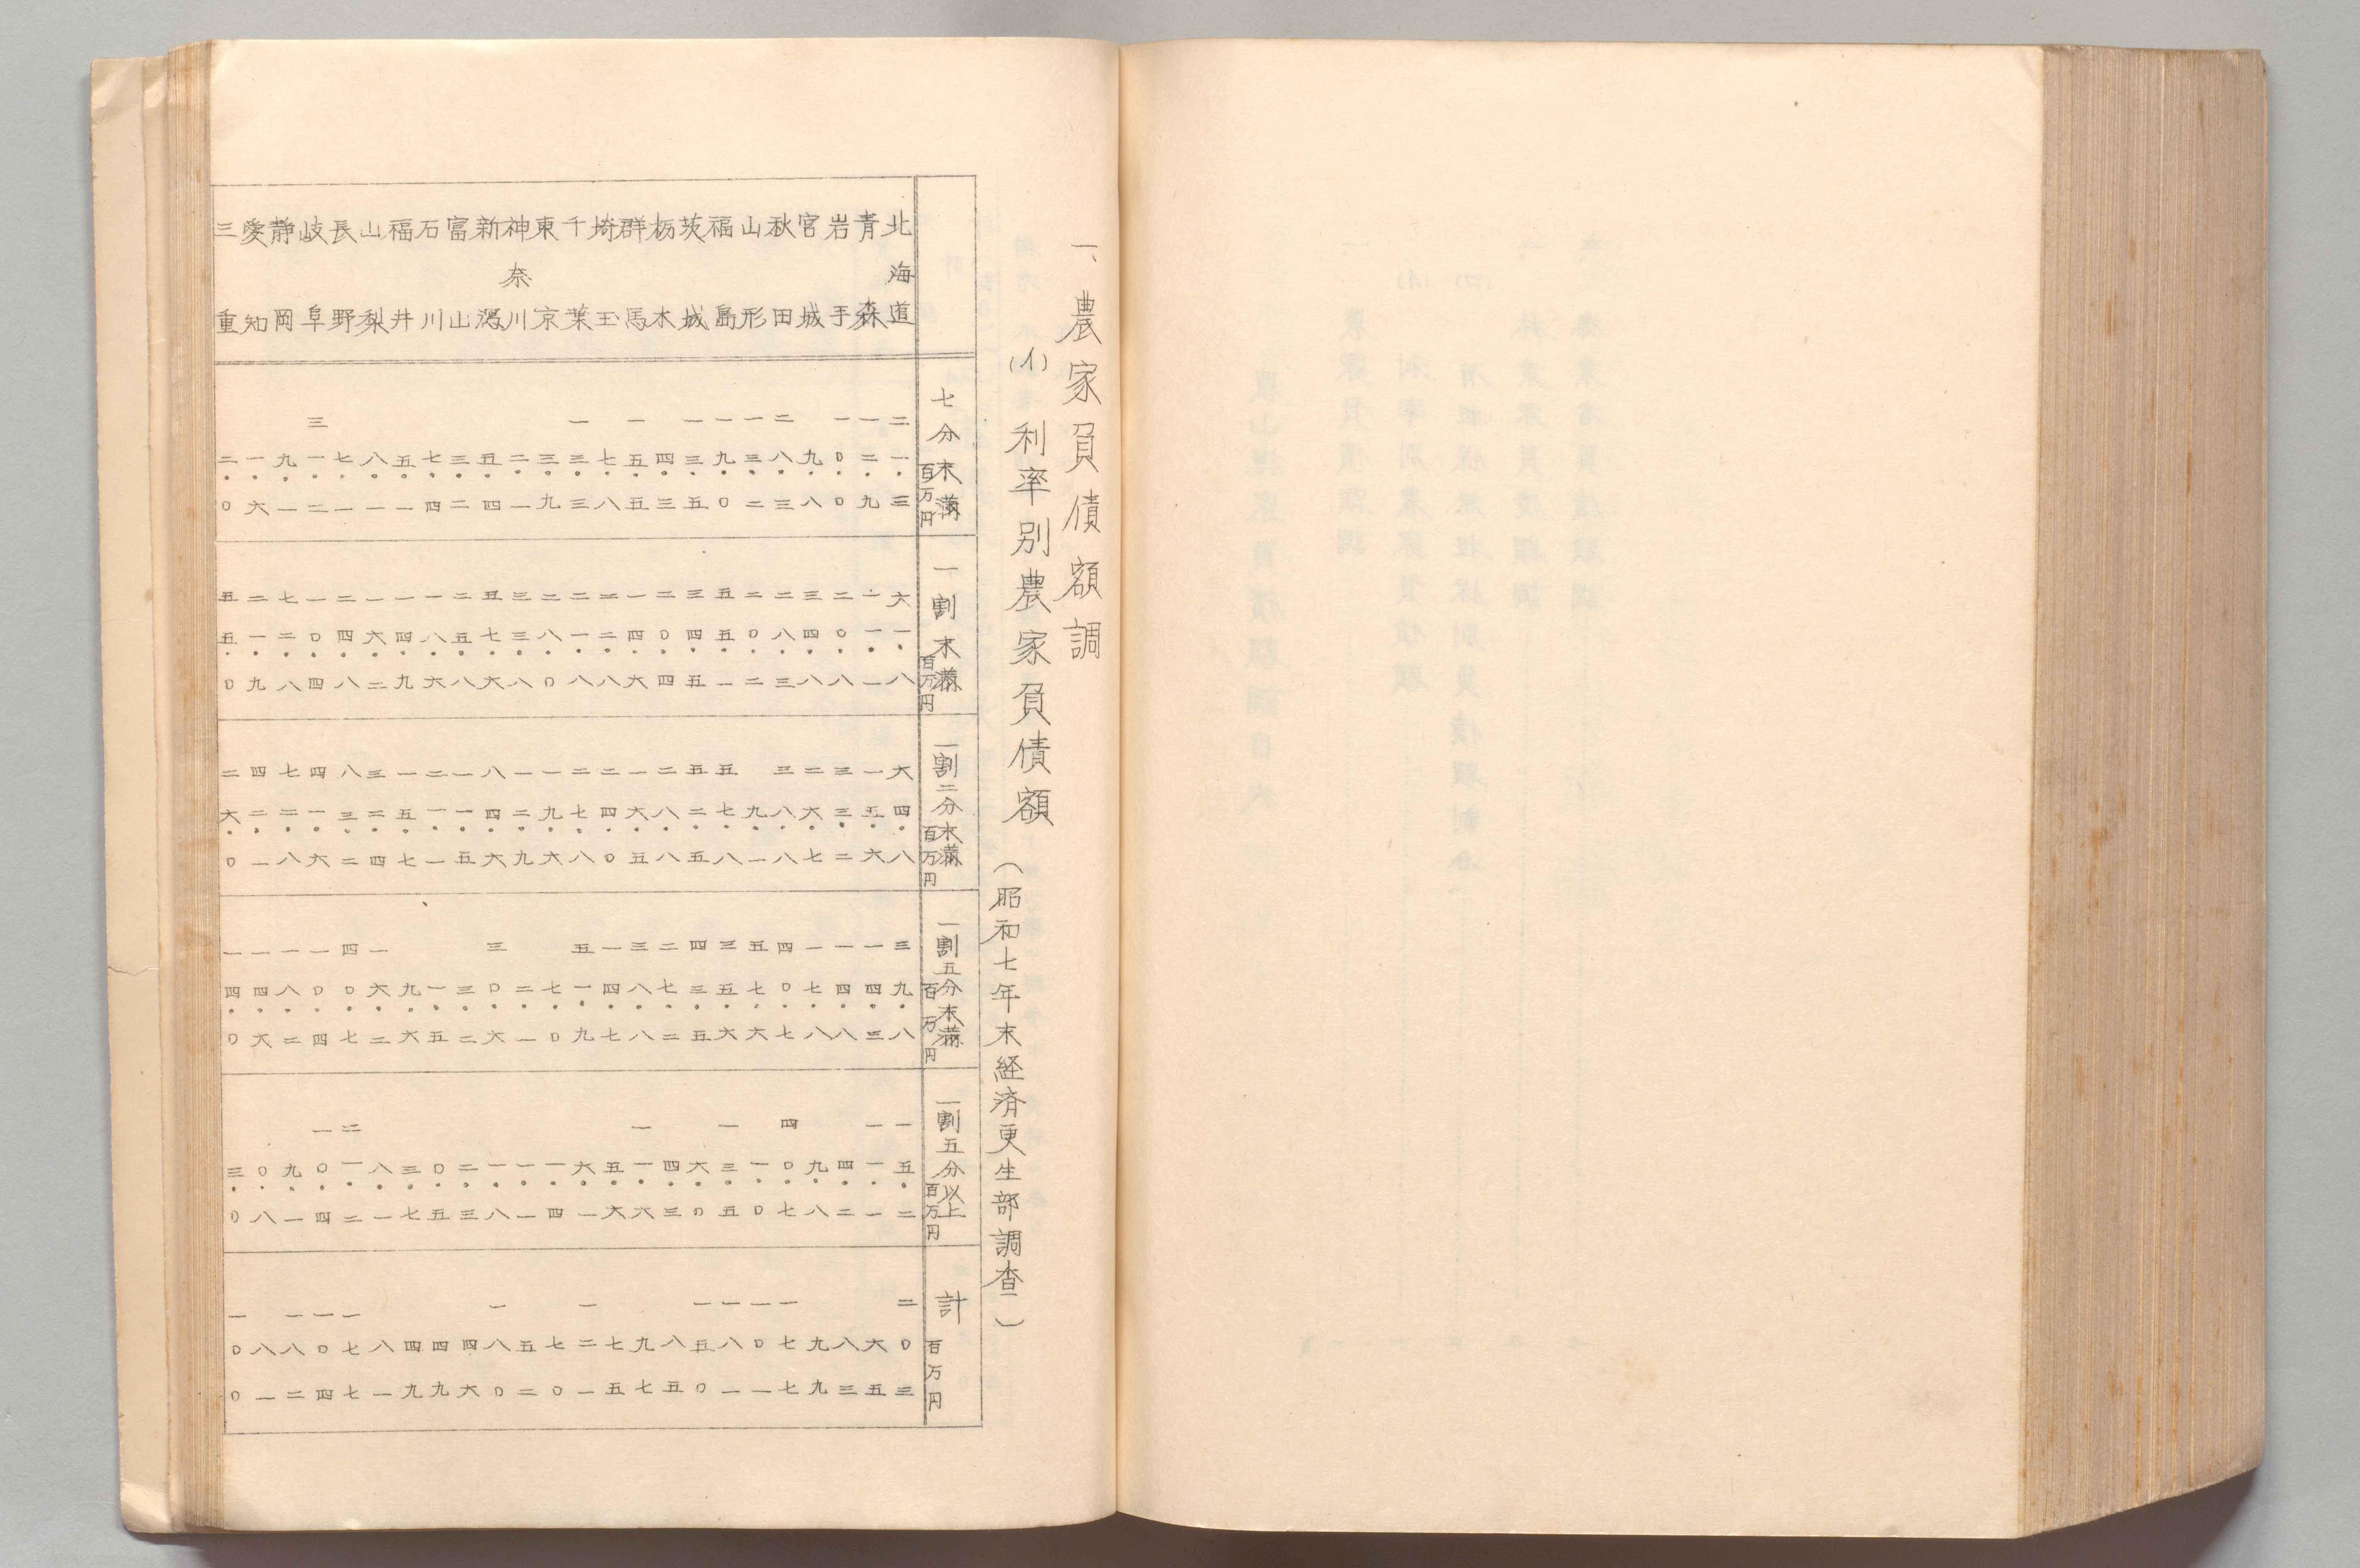 一、農家負債額調
(イ) 利率別農家負債額 (昭和七年末経済更生部調査)
七分未満 百万円 一割未満 百万円 一割二分未満 百万円 一割五分未満 百万円 一割五分以上 百万円 計 百万円
北海道 二一・三 六一・八 六四・八 三九・八 一五・二 二〇三
青森 一二・九 一一・一 一五・六 一四・三 一一・一 六五
岩手 一〇・〇 二〇・八 三三・二 一四・八 四・二 八三
宮城 九・八 三四・八 二六・七 一七・八 九・八 九九
秋田 二八・三 二八・三 三八・八 四〇・七 四〇・七 一七七
山形 一三・二 二〇・二 九・一 五七・六 一・〇 一〇一
福島 一九・〇 五五・一 五七・八 三五・六 一三・五 一八一
茨城 一三・五 三四・五 五二・五 四三・五 六・〇 一五〇
栃木 四・三 二〇・四 二八・八 二七・二 四・三 八五
群馬 一五・五 一四・六 一六・五 三八・八 一一・六 九七
埼玉 七・八 二二・八 二四・〇 一四・七 五・六 七五
千葉 一三・三 二一・八 二七・八 五一・九 六・一 一二一
東京 三・九 二八・〇 一九・六 七・〇 一・四 七〇
神奈川 二・一 三三・八 一二・九 二・一 一・一 五二
新潟 五・四 五七・六 八四・六 三〇・六 一・八 一八〇
富山 三・二 二五・八 一一・五 三・二 二・三 四六
石川 七・四 一八・六 二一・一 一・五 〇・五 四九
福井 五・一 一四・九 一五・七 九・六 三・七 四九
山梨 八・一 一六・二 三二・四 一六・二 八・一 八一
長野 七・一 二四・八 八三・二 四〇・七 二一・二 一七七
岐阜 三一・二 一〇・四 四一・六 一〇・四 一〇・四 一〇四
静岡 九・一 七二・八 七二・八 一八・二 九・一 一八二
愛知 一・六 二一・九 四二・一 一四・六 〇・八 八一
三重 二・〇 五五・〇 二六・〇 一四・〇 三・〇 一〇〇